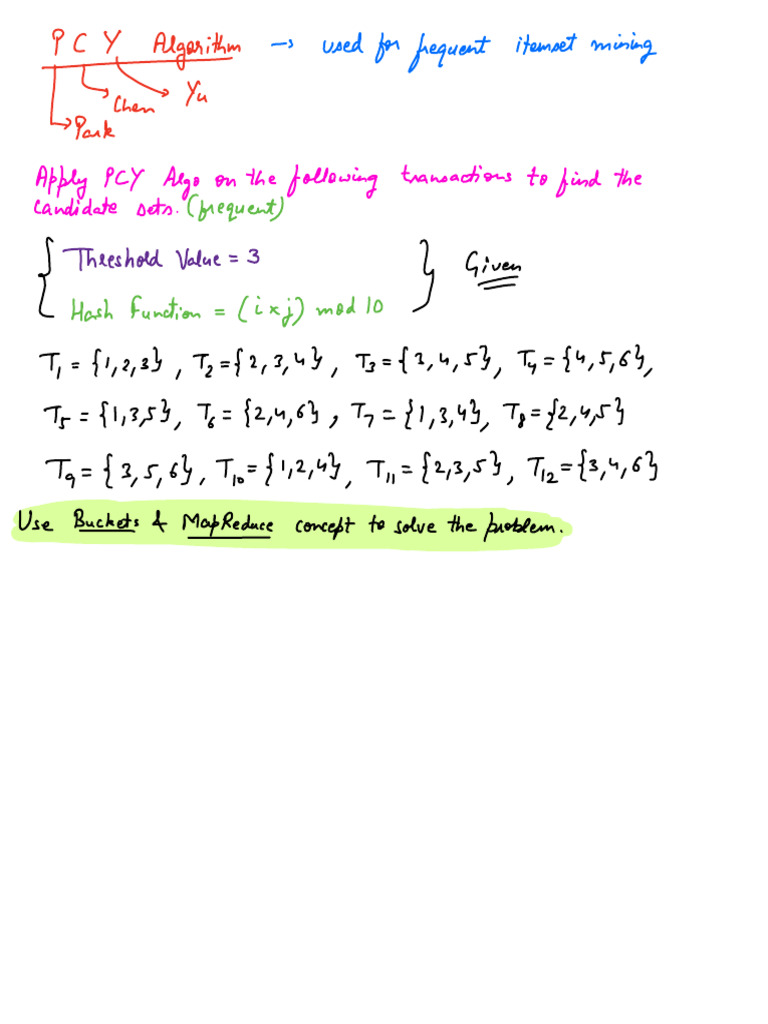 PCY Algorithm → used for frequent itemset mining
Chen Yu
Park
Apply PCY Algo on the following transactions to find the
candidate sets. (frequent)
Threshold Value = 3
Given
Hash Function = (i x j) mod 10
T₁ = {1,2,3}, T₂ = {2,3,4}, T₃ = {3,4,5}, T₄ = {4,5,6},
T₅ = {1,3,5}, T₆ = {2,4,6}, T₇ = {1,3,4}, T₈ = {2,4,5}
T₉ = {3,5,6}, T₁₀ = {1,2,4}, T₁₁ = {2,3,5}, T₁₂ = {3,4,6}
Use Buckets & MapReduce concept to solve the problem.